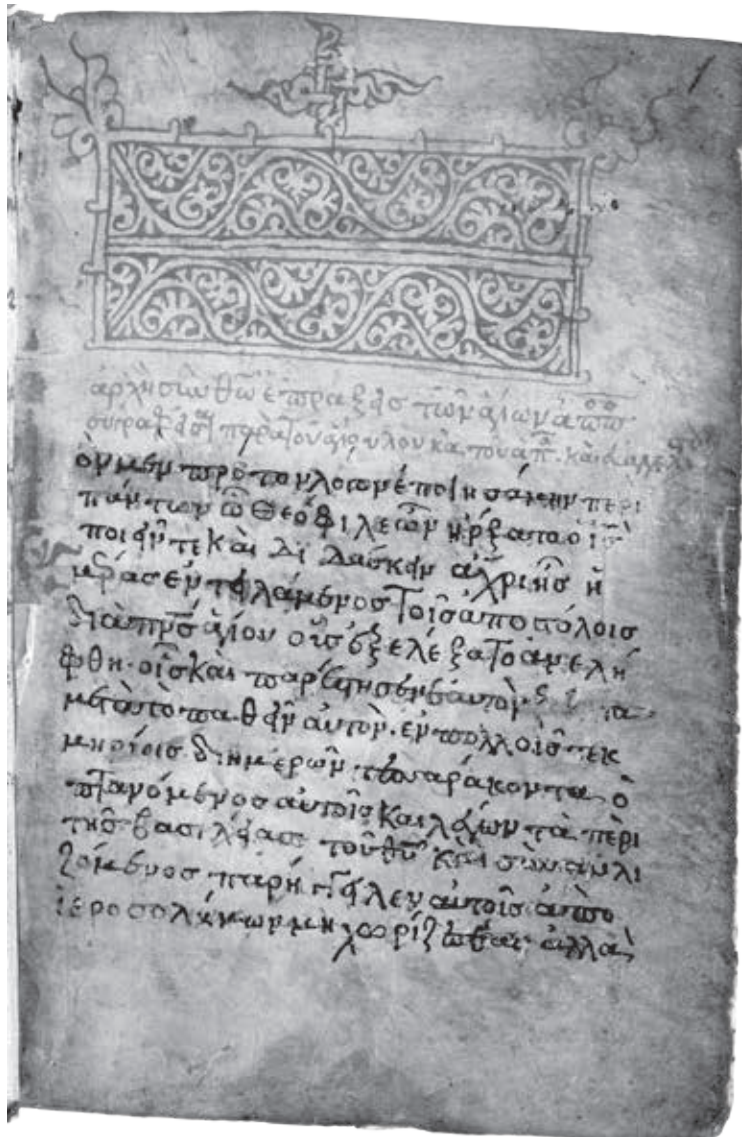 ἀρχὴ σὺν θῶ πράξεις τῶν ἁγίων ἀπο
παρὰ τοῦ ἁγίου λουκᾶ τοῦ ἀπ. καὶ
ὸν μὲν πρότον λόγον ἐποιησάμην περι
πάντων ὦ Θεόφιλε ὧν ἤρξατο ὁ ις
ποιεῖν τε καὶ διδάσκειν ἄχρι ἧς ἡ
μέρας ἐντειλάμενος τοῖς ἀποστόλοις
διὰ πνς ἁγίου οὓς ἐξελέξατο ἀνελή
φθη. οἷς καὶ παρέστησεν ἑαυτὸν
μετὰ τὸ παθεῖν αὐτὸν. ἐν πολλοῖς τεκ
μηρίοις. δι ημερῶν τεσαράκοντα ὀ
πτανόμενος αὐτοῖς καὶ λέγων τὰ περὶ
τῆς βασιλείας τοῦ θυ καὶ συναυλι
ζόμενος παρήγγειλεν αὐτοῖς ἀπο
ἱεροσολύμων μη χωρίζεσθαι ἀλλὰ